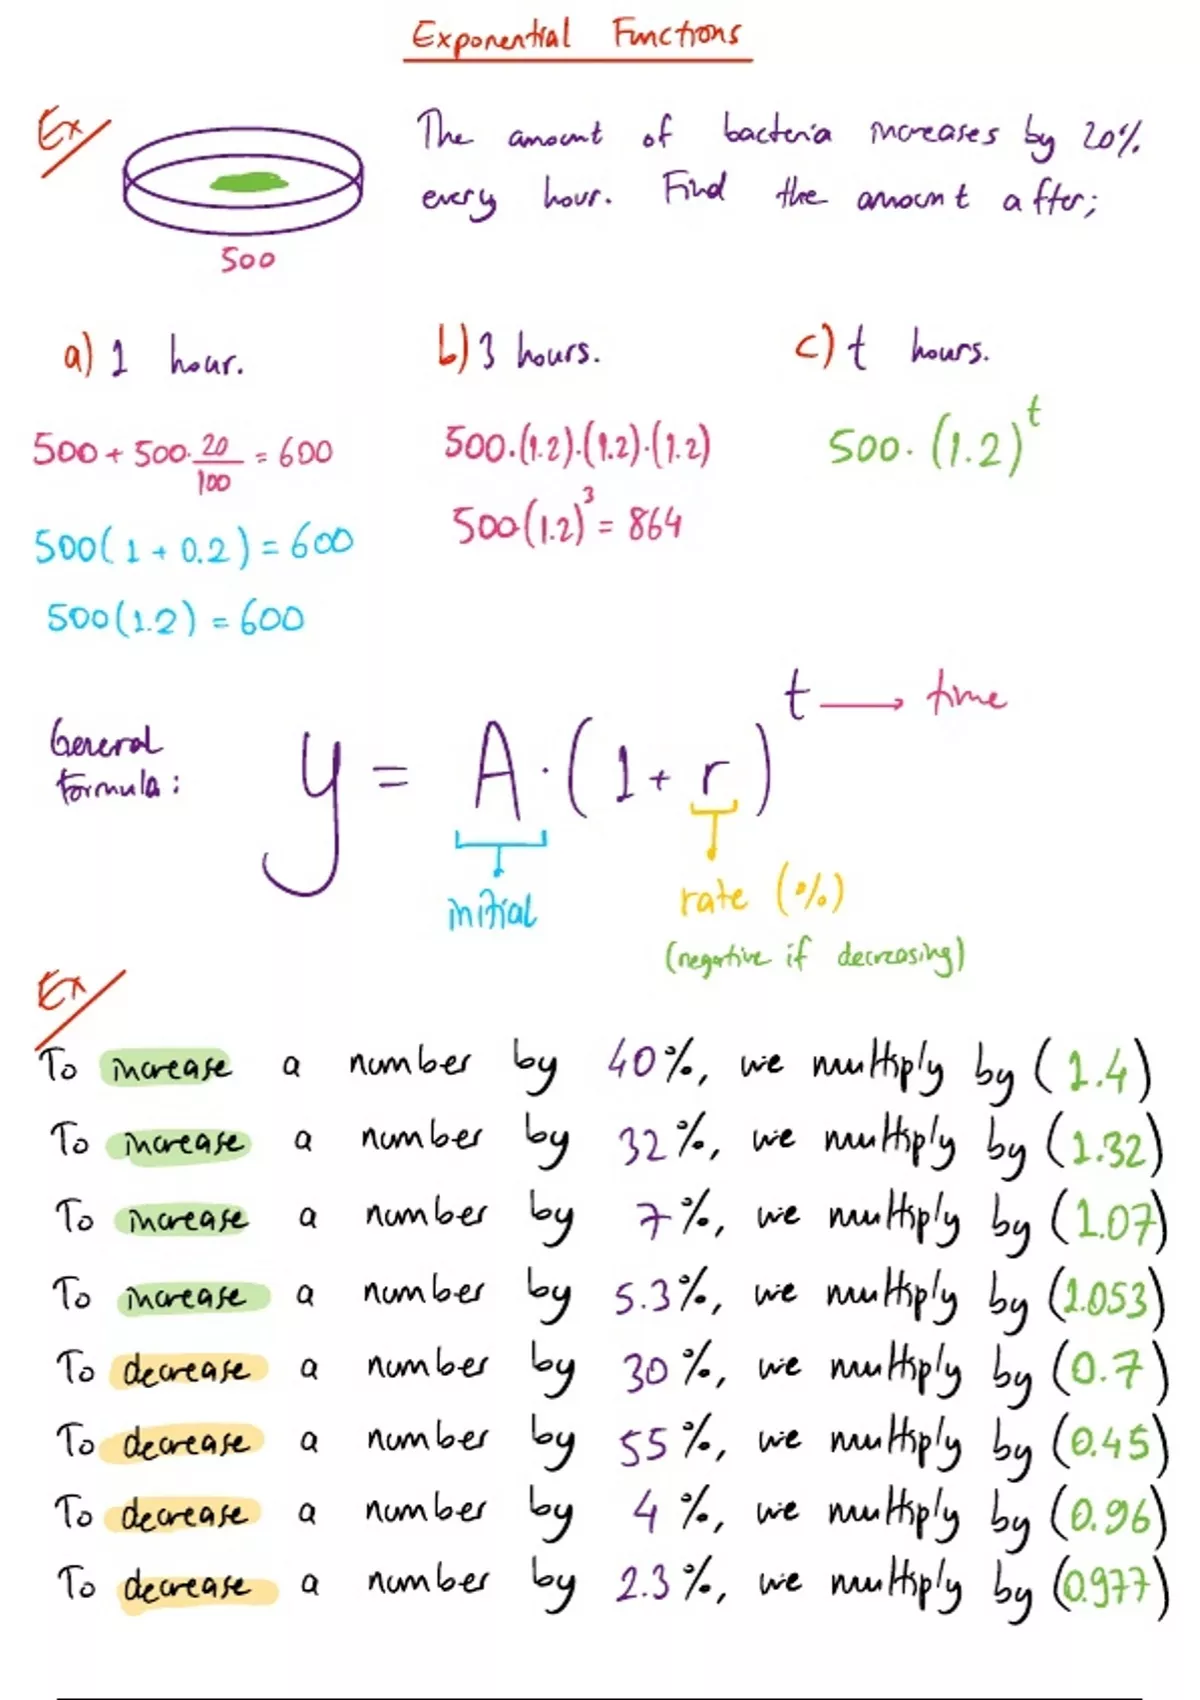 Exponential Functions
Ex
The amount of bacteria increases by 20%
every hour. Find the amount after;
500
a) 1 hour.
b) 3 hours.
c) t hours.
500 + 500 · 20/100 = 600
500(1 + 0.2) = 600
500(1.2) = 600
500·(1.2)·(1.2)·(1.2)
500(1.2)³ = 864
500·(1.2)^t
General
formula:
y = A·(1 + r)^t → time
initial
rate (%)
(negative if decreasing)
Ex
To increase a number by 40%, we multiply by (1.4)
To increase a number by 32%, we multiply by (1.32)
To increase a number by 7%, we multiply by (1.07)
To increase a number by 5.3%, we multiply by (1.053)
To decrease a number by 30%, we multiply by (0.7)
To decrease a number by 55%, we multiply by (0.45)
To decrease a number by 4%, we multiply by (0.96)
To decrease a number by 2.3%, we multiply by (0.977)